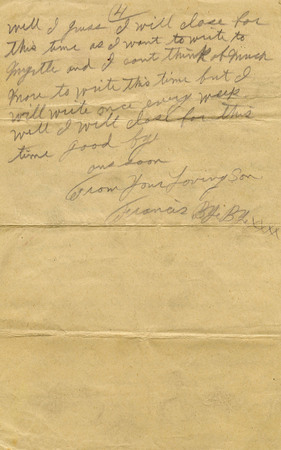 (4)
well I guess I will close for
this time as I want to write to
Myrtle and I cant think of much
more to write this time but I
will write once every week
well I will close for this
time good by
ans soon
From Your Loving Son
Francis